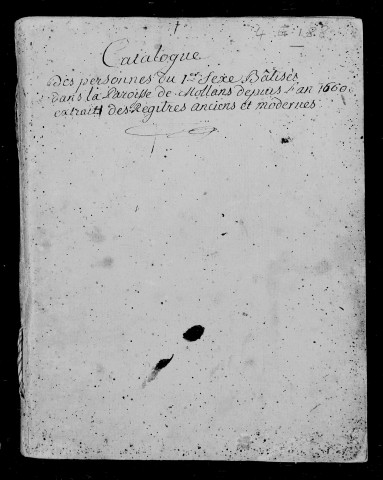 Catalogue
Des personnes du 1er Sexe Bâtisés
dans la Paroisse de Mollans depuis l'an 1660
extrait des Régitres anciens et modernes